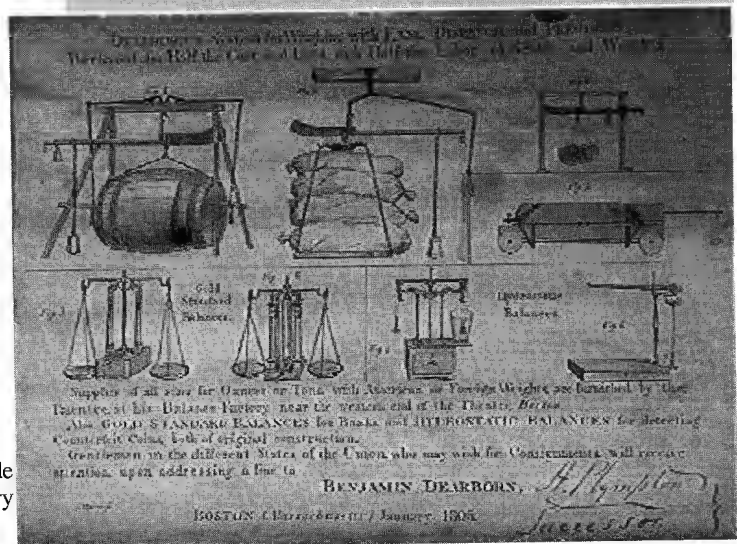 with EASE, DISPATCH and
Half the Cost and Half the Labor of and
Fig. 5
Gold
Standard
Balances.
Hydrostatic
Balances.
Fig. 6
Supplies of all sizes for Ounces or Tons, with American or Foreign Weights, are furnished by the
Patentee, at his Balance Factory near the western end of the Theatre, Boston.
Also GOLD STANDARD BALANCES for Banks and HYDROSTATIC BALANCES for detecting
Counterfeit Coins, both of original construction.
Gentlemen in the different States of the Union who may wish for Consignments, will receive
attention upon addressing a line to
BENJAMIN DEARBORN,
BOSTON (Massachusetts) January, 1805
H. Plympton
Successor
le
ry